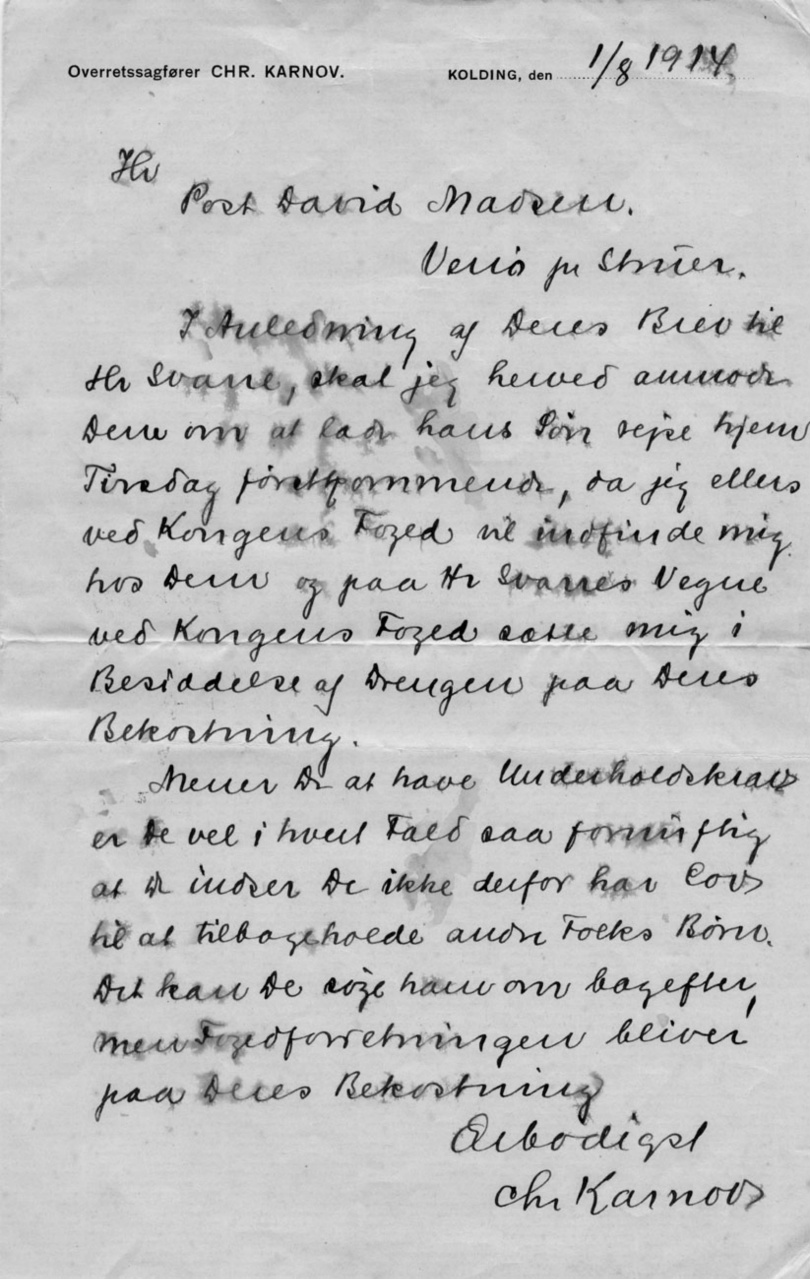 Overretssagfører CHR. KARNOV.
KOLDING, den 1/8 1914.
Hr
Post David Madsen.
Venø pr Struer.
I Anledning af Deres Brev til
Hr Svane, skal jeg herved anmode
Dem om at lade hans Søn rejse hjem
Tirsdag førstkommende, da jeg ellers
ved Kongens Foged vil indfinde mig
hos Dem og paa Hr Svanes Vegne
ved Kongens Foged sætte mig i
Besiddelse af Drengen paa Deres
Bekostning.
Mener De at have Underholdskrav
er De vel i hvert Fald saa fornuftig
at De indser De ikke derfor har Lov
til at tilbageholde andre Folks Børn.
Det kan De søge ham om bagefter,
men Fogedforretningen bliver
paa Deres Bekostning
Ærbødigst
Chr Karnov